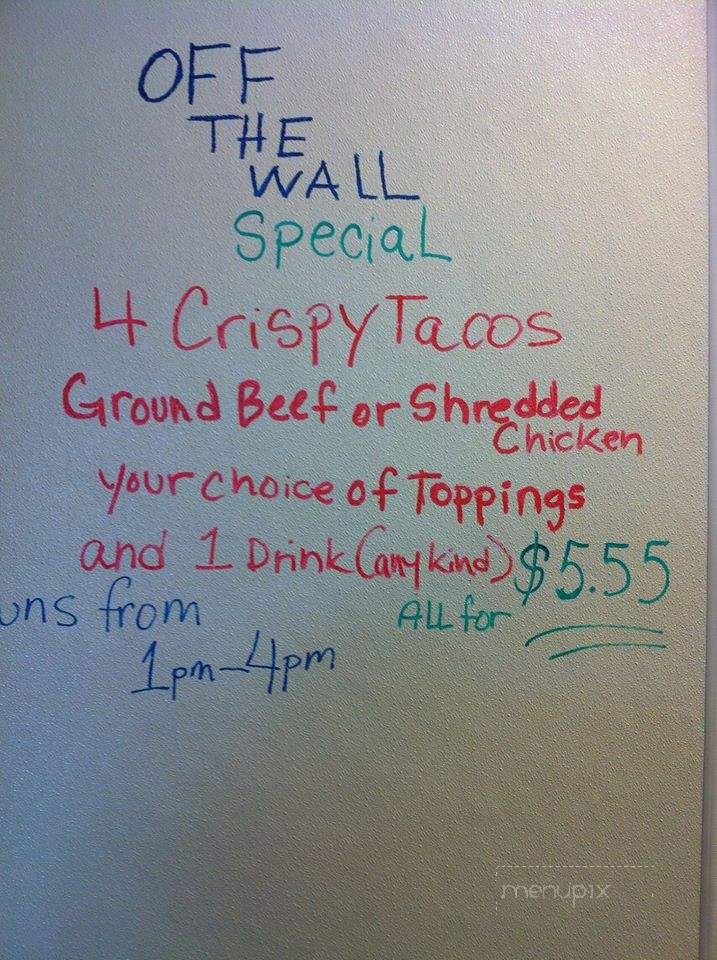 OFF
THE
WALL
Special
4 Crispy Tacos
Ground Beef or Shredded
Chicken
your choice of Toppings
and 1 Drink (any kind) $5.55
ALL for
uns from
1pm-4pm
menupix